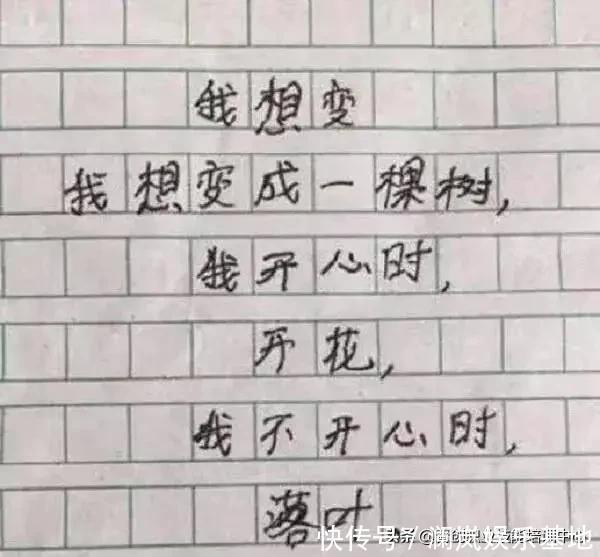 我想变
我想变成一棵树，
我开心时，
开花，
我不开心时，
落叶
快传号／澜岚娱乐基地